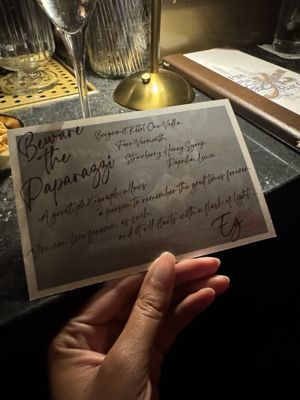 Beware
the
Paparazzi
Bergamot Ketel One Vodka,
Fero Vermouth,
Strawberry Honey Syrup,
Paprika, Lemon
A great photograph allows
a person to remember the great times forever.
You can live forever, as such,
and it all starts with a flash of light.